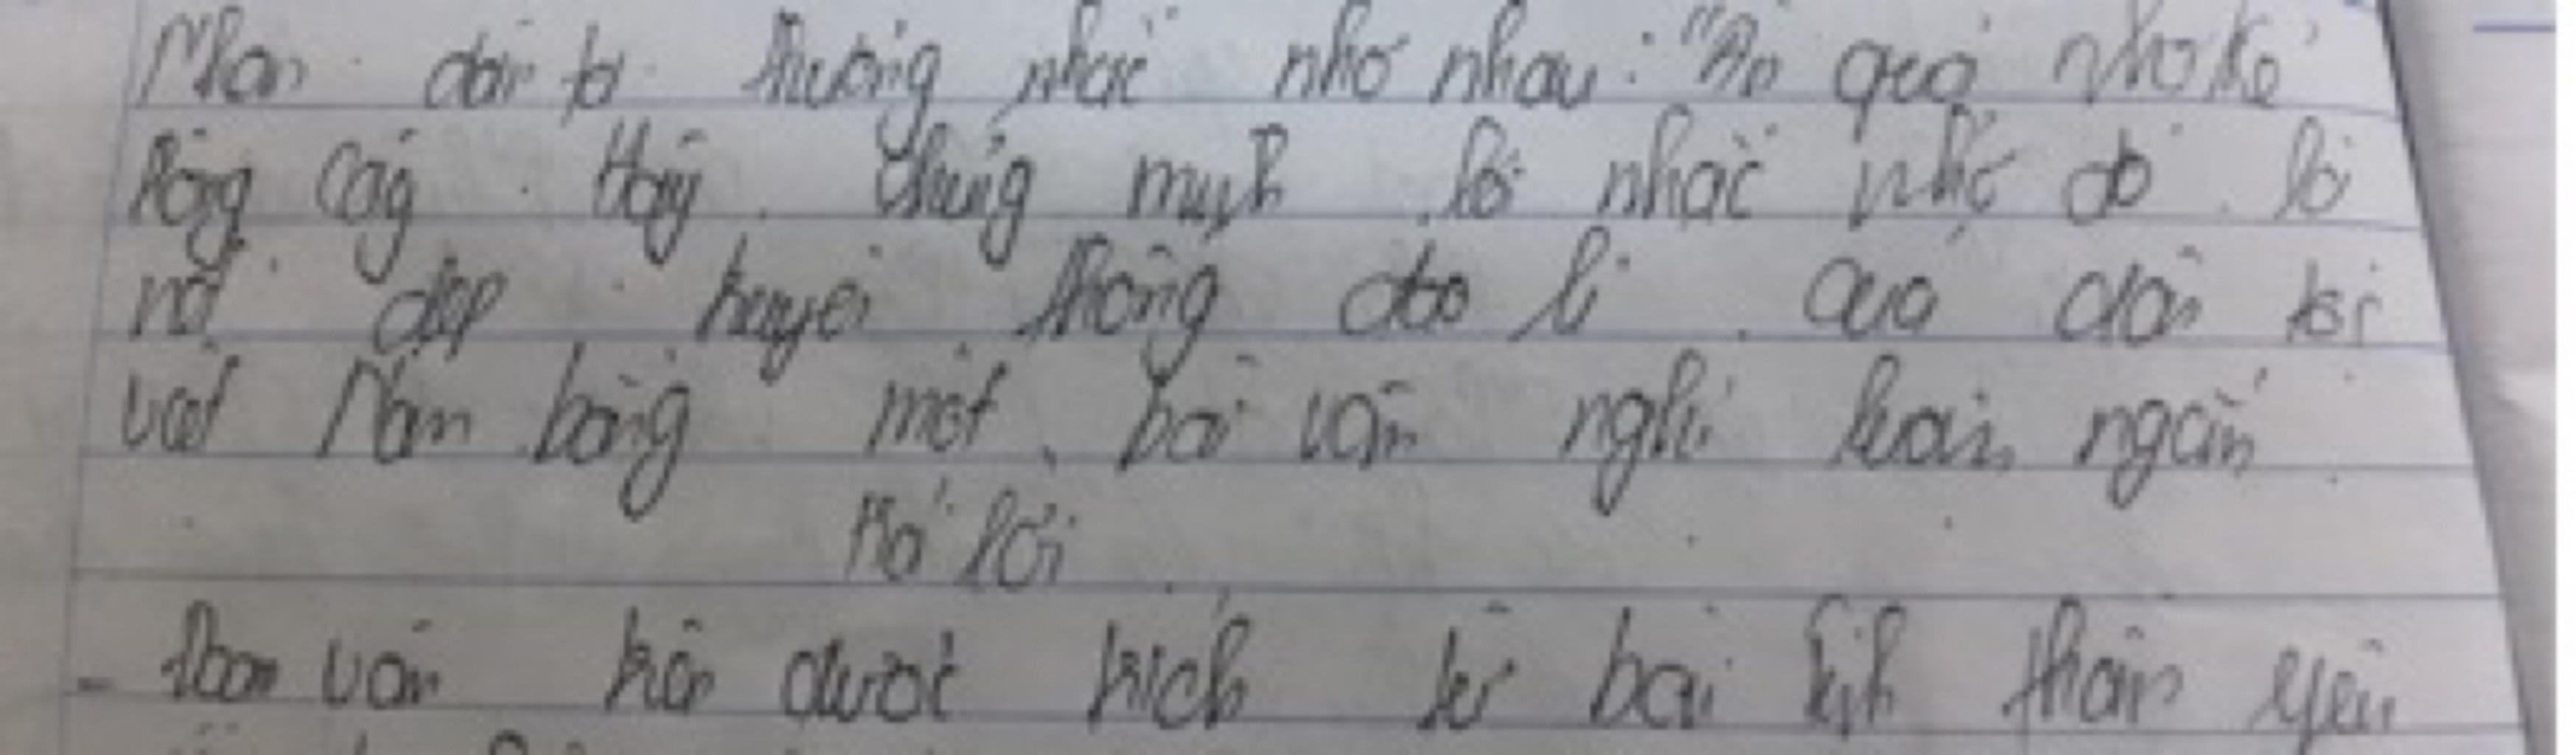 Nhân dân ta thường nhắc nhở nhau: "Ăn quả nhớ kẻ
trồng cây. Hãy chứng minh lời nhắc nhở đó là
nét đẹp truyền thống đạo lí của dân tộc
việt Nam bằng một bài văn nghị luận ngắn
Trả lời
- Đoạn văn trên được trích từ bài tinh thần yêu